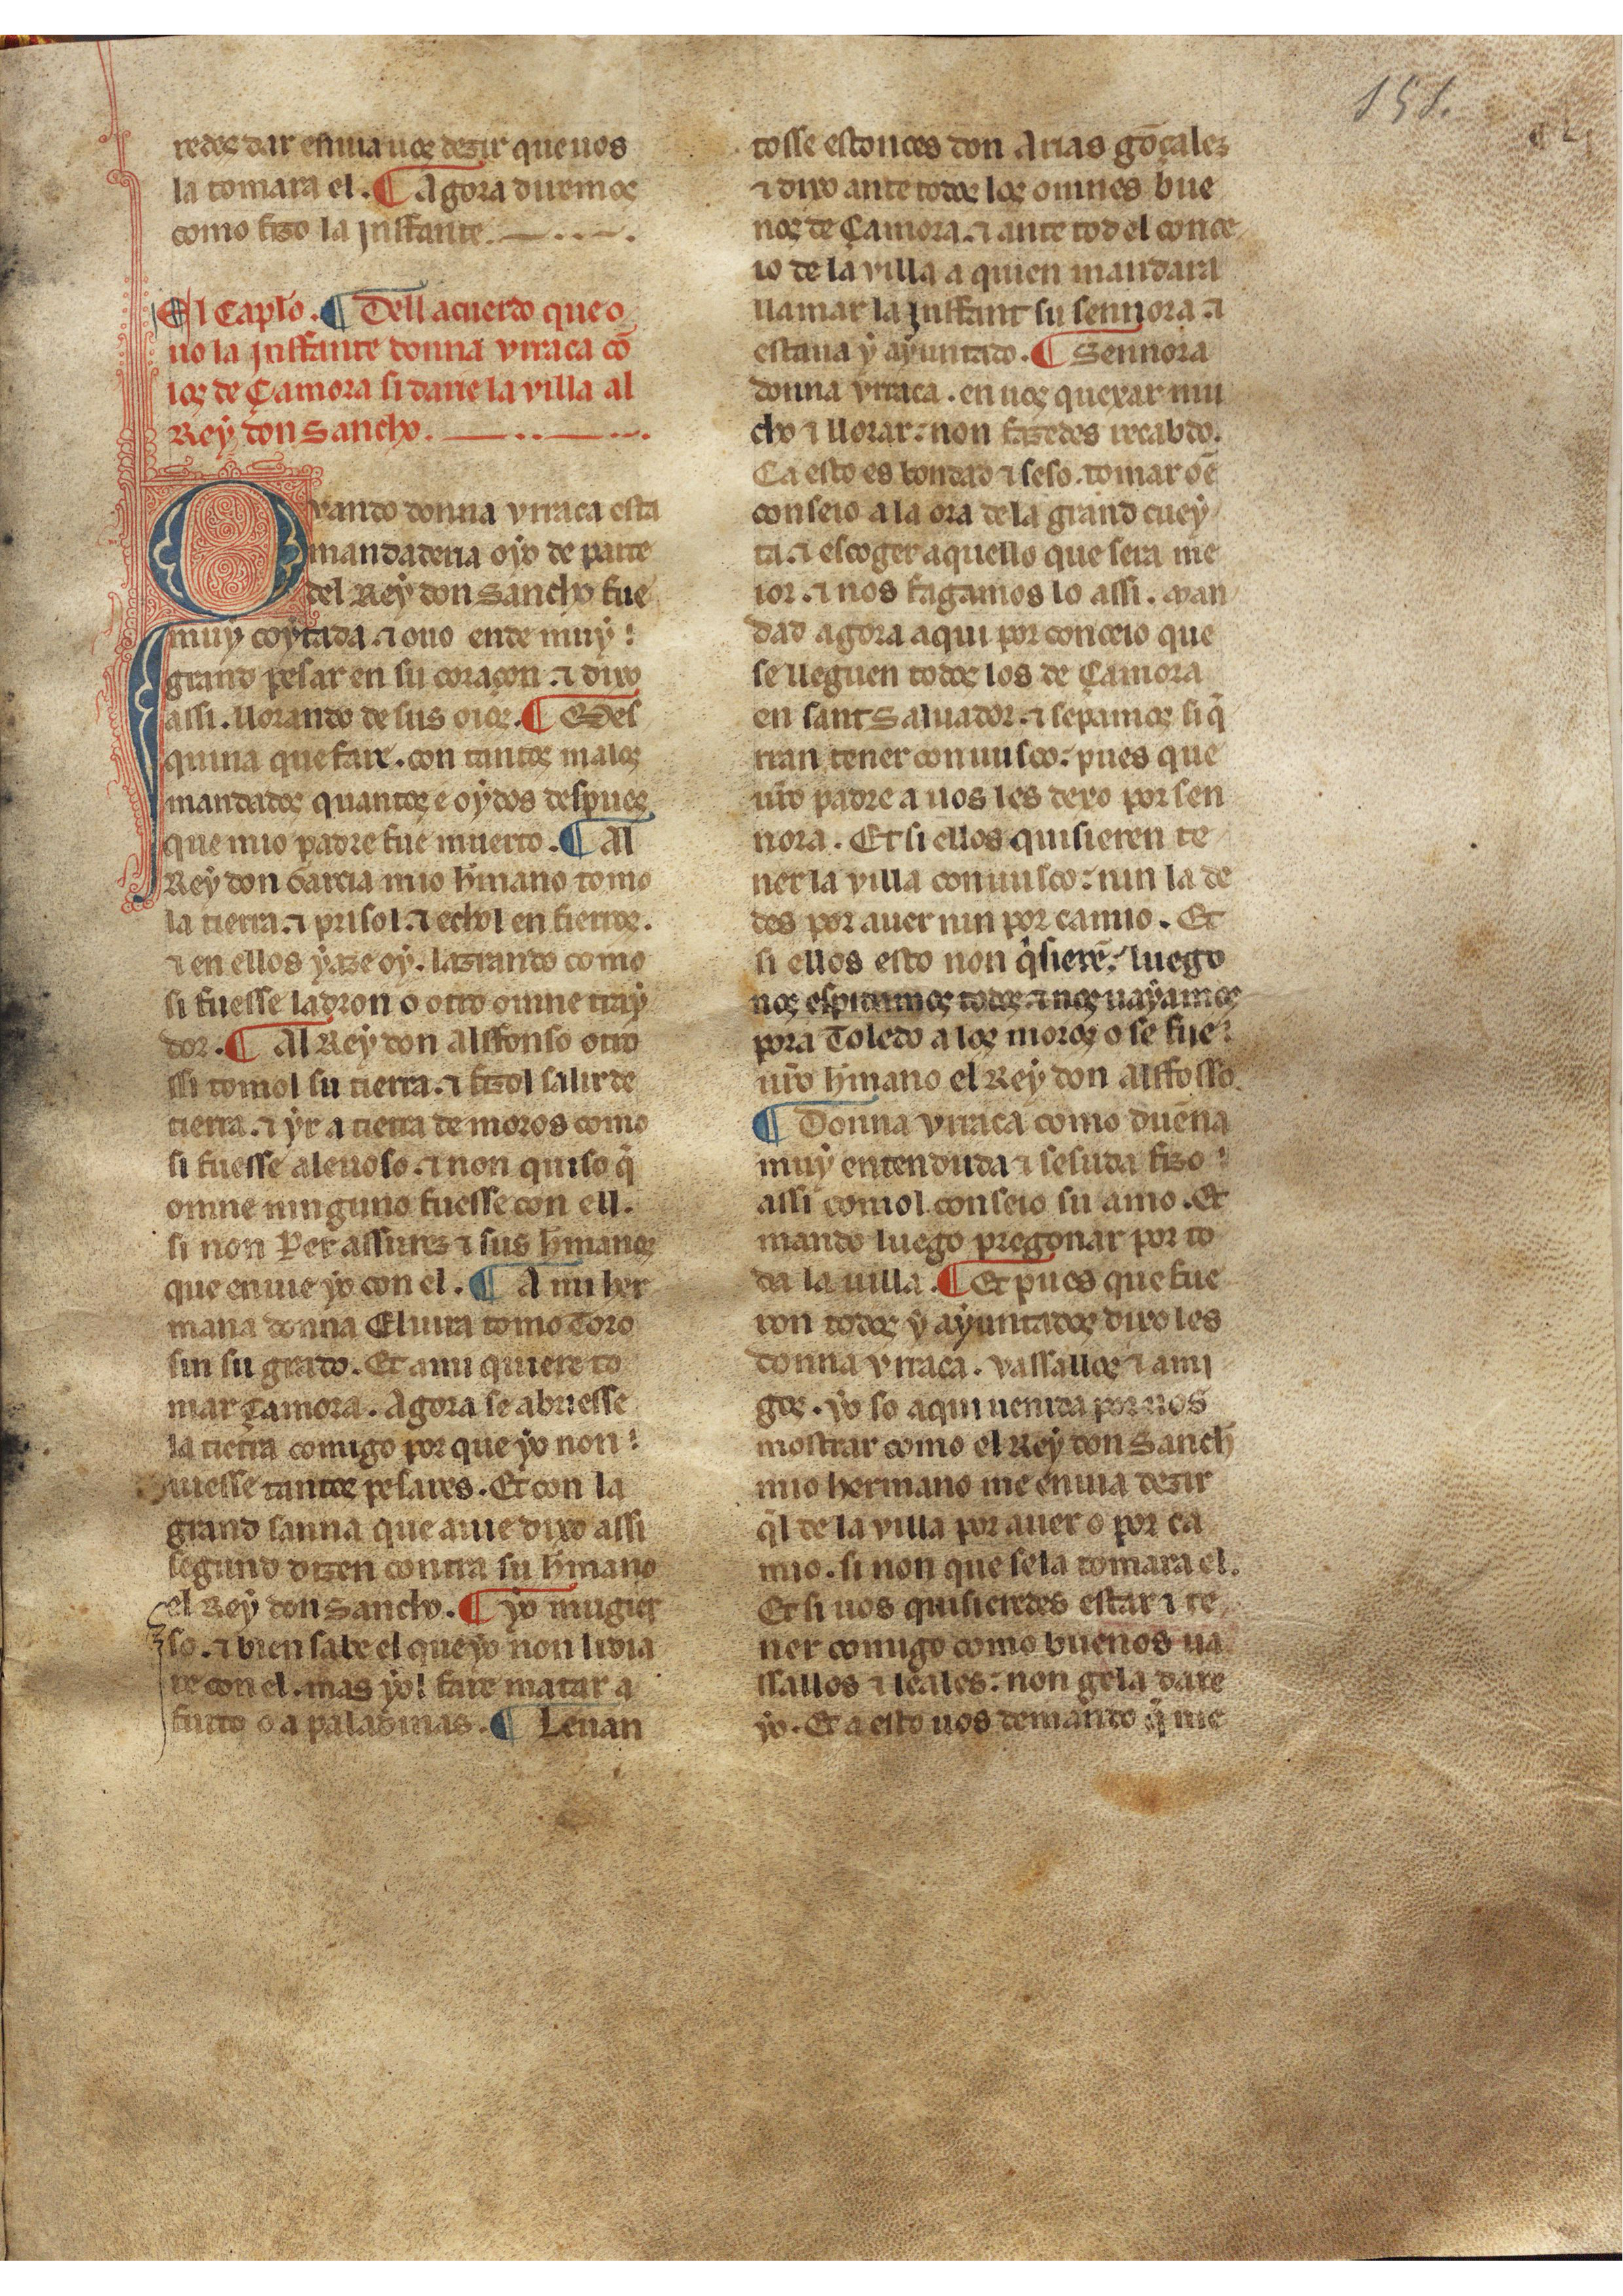 151.
redes dar enuia uos dezir que uos
la tomara el. ¶ Agora diremos
como fizo la jnffante.
El Caplo. ¶ Dell acuerdo que o
uo la jnffante donna vrraca cō
los de Çamora si darie la villa al
Rey don Sancho.
Quando donna vrraca esta
mandaderia oyo de parte
del Rey don Sancho fue
muy coytada. ⁊ ouo ende muy
grand pesar en su coraçon. ⁊ dixo
assi. llorando de sus oios. ¶ Mes
quina que fare. con tantos malos
mandados quantos e oydos despues
que mio padre fue muerto. ¶ Al
Rey don Garcia mio hr̄mano tomo
la tierra. ⁊ prisol. ⁊ echol en fierros.
⁊ en ellos yaze oy. lazrando como
si fuesse ladron o otro omne tray
dor. ¶ Al Rey don Alffonso otro
ssi tomol su tierra. ⁊ fizol salir de
tierra. ⁊ yr a tierra de moros como
si fuesse aleuoso. ⁊ non quiso q̄
omne ninguno fuesse con ell.
si non Per assurez ⁊ sus hr̄manos
que enuie yo con el. ¶ A mi her
mana donna Eluira tomo Toro
sin su grado. Et a mi quiere to
mar Çamora. Agora se abriesse
la tierra comigo por que yo non
uiesse tantos pesares. Et con la
grand sanna que auie dixo assi
segund dizen contra su hr̄mano
el Rey don Sancho. ¶ Yo mugier
so. ⁊ bien sabe el que yo non lidia
re con el. mas yol fare matar a
furto o a paladinas. ¶ Leuan
tosse estonces don Arias gōçalez
⁊ dixo ante todos los omnes bue
nos de Çamora. ⁊ ante tod el conce
io de la villa a quien mandara
llamar la Jnffant su sennora. ⁊
estaua y ayuntado. ¶ Sennora
donna vrraca. en uos quexar mu
cho ⁊ llorar: non fazedes recabdo.
Ca esto es bondad ⁊ seso. tomar oē
conseio a la ora de la grand cuey
ta. ⁊ escoger aquello que sera me
ior. ⁊ nos fagamos lo assi. Man
dad agora aqui por conceio que
se lleguen todos los de Çamora
en sant Saluador. ⁊ sepamos si q̄
rran tener conuusco: pues que
ur̄o padre a uos les dexo por sen
nora. Et si ellos quisieren te
ner la villa conuusco: nin la de
des por auer nin por camio. Et
si ellos esto non q̄sierē: luego
nos espidamos todos ⁊ nos uayamos
pora Toledo a los moros o se fue
ur̄o hr̄mano el Rey don Alffosso.
¶ Donna vrraca como duēna
muy entenduda ⁊ sesuda fizo
assi comol conseio su amo. Et
mando luego pregonar por to
da la uilla. ¶ Et pues que fue
ron todos y ayuntados dixo les
donna vrraca. vassallos ⁊ ami
gos. yo so aqui uenida por uos
mostrar como el Rey don Sanch̄
mio hermano me enuia dezir
q̄l de la villa por auer o por ca
mio. si non que se la tomara el.
Et si uos quisieredes estar ⁊ te
ner comigo como buenos ua
ssallos ⁊ leales: non gela dare
yo. Et a esto uos demando q̄ me